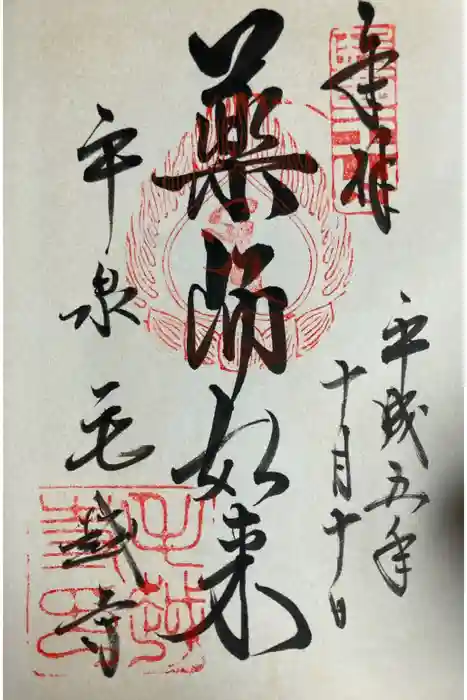 奉拝
平成五年
十月十日
薬師如来
平泉 毛越寺
毛越寺